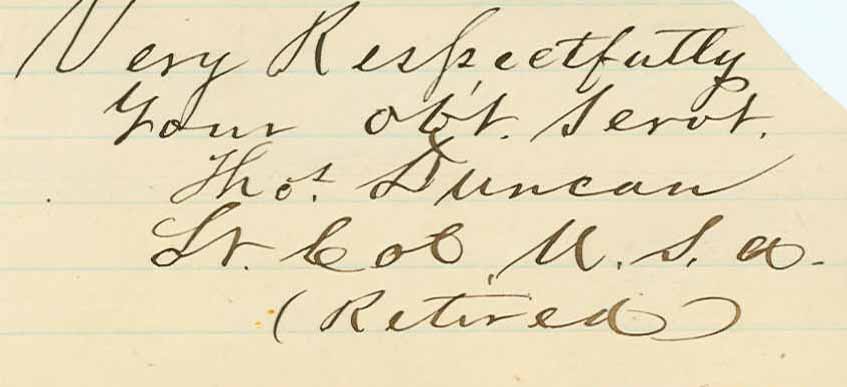 Very Respectfully
Your ob't. Servt.
Thos. Duncan
Lt. Col. U. S. A.
(Retired)